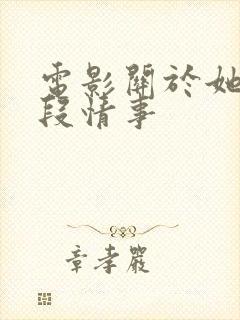 電影關於她
段情事
章孝嚴